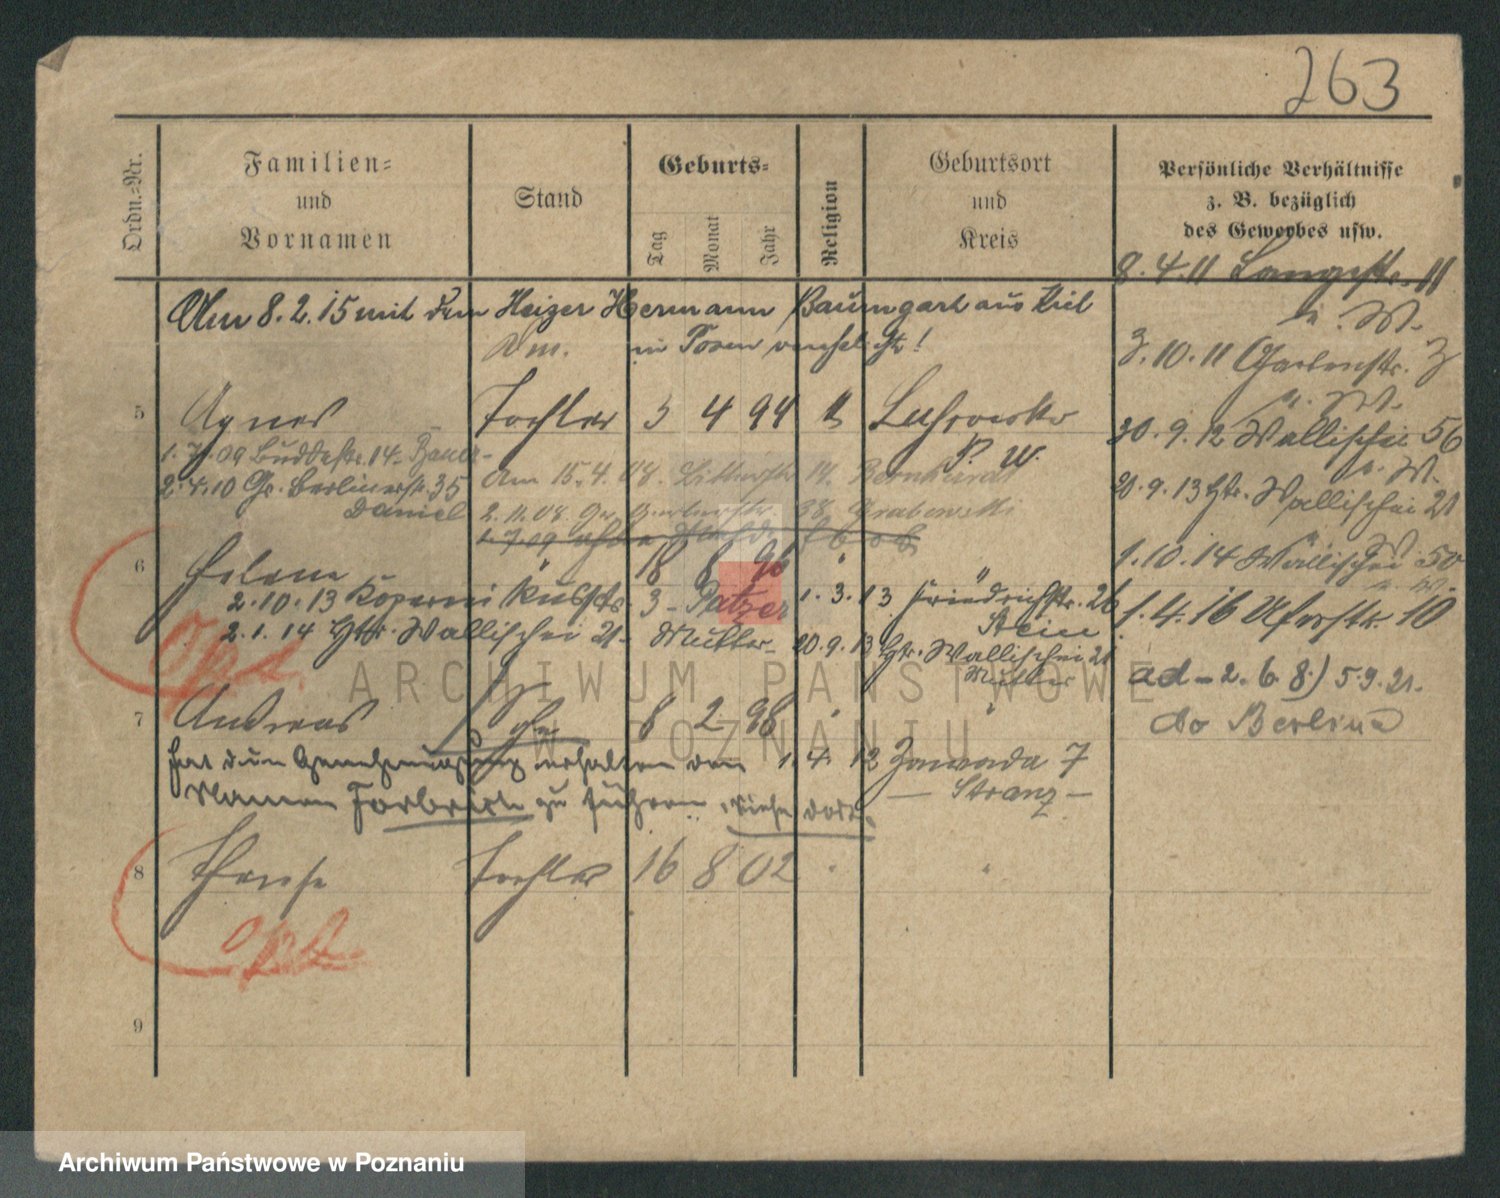 263
Ordn.-Nr.
Familien-
und
Vornamen
Stand
Geburts-
Tag
Monat
Jahr
Religion
Geburtsort
und
Kreis
Persönliche Verhältnisse
z. B. bezüglich
des Gewerbes usw.
8.4.11 Langestr. 11
Am 8.2.15 mit dem Heizer Hermann Baumgart aus Kiel
in Posen verehelicht!
3.10.11 Gartenstr. 3
5 Agnes Tochter 3 4 94
30.9.12 Wallischei 56
1.7.09 Buddestr. 14
2.4.10 Gr. Berlinerstr. 35 Am 15.4.08. 14.
Daniel
20.9.13 Htr. Wallischei 21
2.11.08 Gr. Gerberstr. 38 Grabowski
1.7.09
6 Helene 18 8 96
1.10.14 Wallischei 50
2.10.13 3 - Patzer 1.3.13 Friedrichstr. 26
Stein
1.4.16 Uferstr. 10
2.1.14 Htr. Wallischei 21 - Mutter - 20.9.13 Htr. Wallischei 21
Mutter
Opt.
ad - 2.6.8.) 5.9.21.
do Berlina
7 Andreas Sohn 8 2 98
hat die Genehmigung erhalten den 1.4.12 Zawada 7
- Stranz -
Namen zu führen, siehe dort.
8 Tochter 16 8 02
Opt.
9
ARCHIWUM PAŃSTWOWE
W POZNANIU
Archiwum Państwowe w Poznaniu